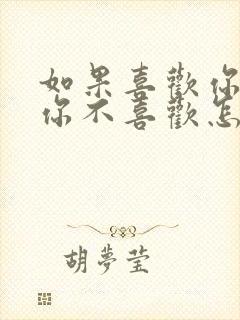 如果喜歡你
你不喜歡怎
胡夢瑩